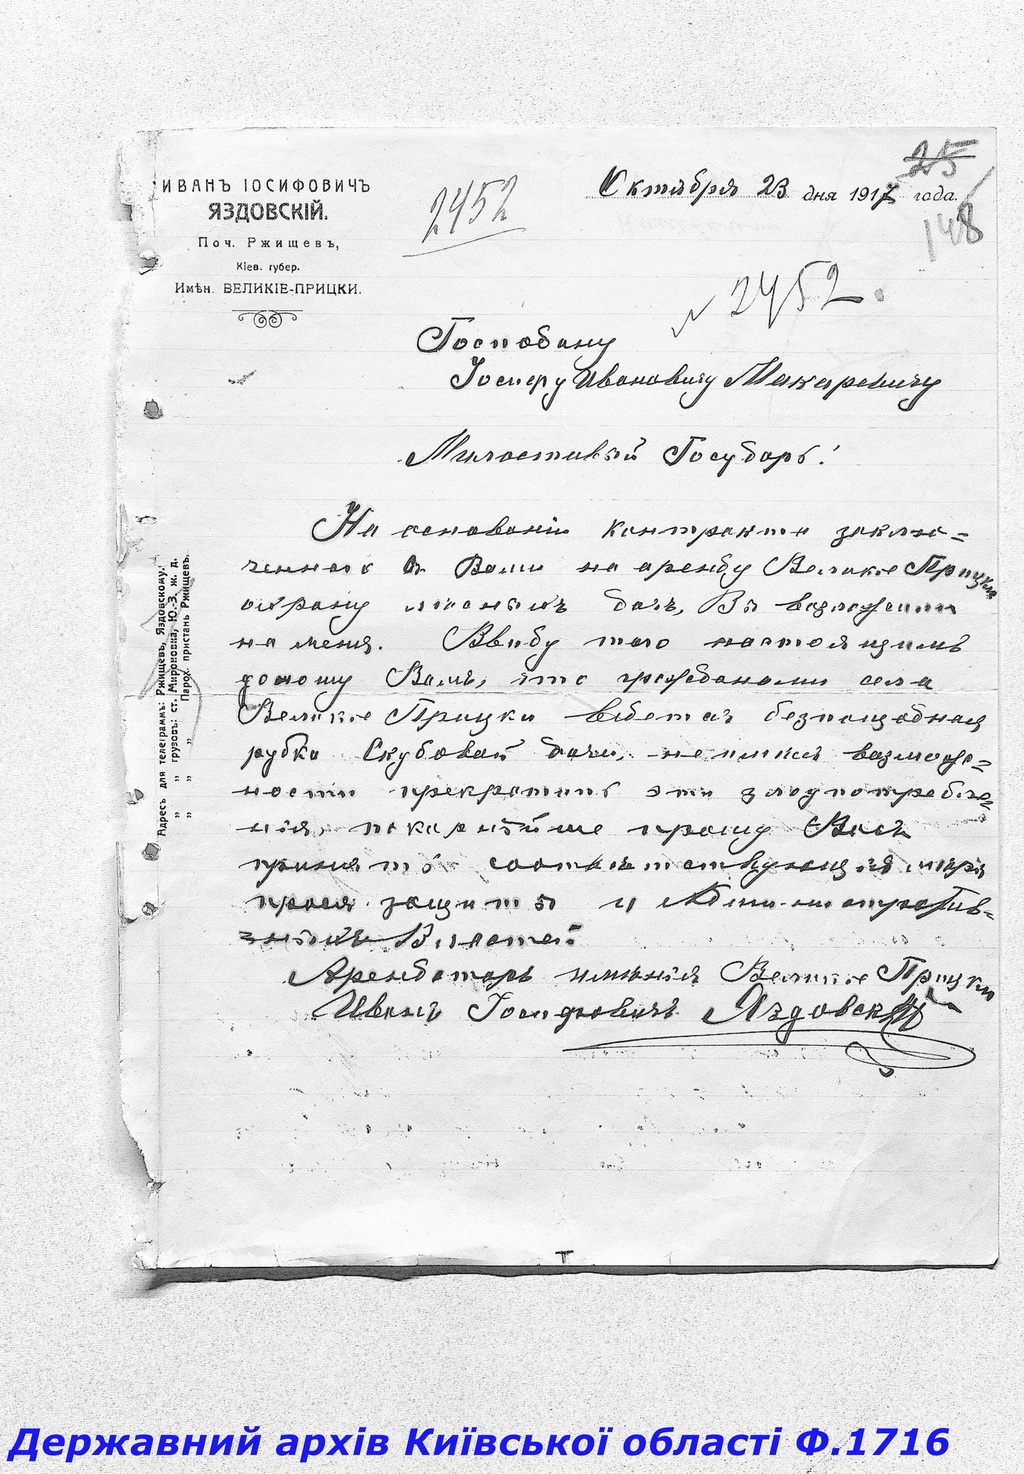 ИВАНЪ ІОСИФОВИЧЪ
ЯЗДОВСКІЙ.
Поч. Ржищевъ,
Кіев. губер.
Имѣн. ВЕЛИКІЕ-ПРИЦКИ.
2452
Октября 23 дня 1917 года.
25
148
N 2452.
Господину
Іосифу Ивановичу Макаревичу
Милостивый Государь!
На основаніи контракта заклю=
ченного с Вами на аренду Великіе Прицки
охрану лѣсныхъ дачъ, Вы возложили
на меня. Ввиду того настоящимъ
доношу Вамъ, что гражданами села
Великіе Прицки ведется безпощадная
рубка Дубовой дачи, не имея возмож=
ности прекратить эти злоупотребле=
нія, покорнѣйше прошу Васъ
принять соответствующія меры
прося защиты у Административ=
ныхъ Властей
Арендаторъ имѣнія Великіе Прицки
Иванъ Іосифовичъ Яздовскій
Адресъ для телеграмъ: Ржищевъ, Яздовскому.
" " грузовъ: ст. Мироновка, Ю.-З. ж. д.
" " " Парох. пристань Ржищевъ.
Державний архів Київської області Ф.1716